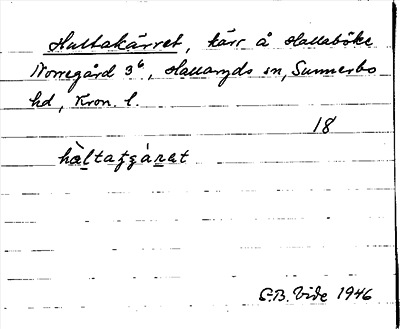 Haltakärret, kärr å Hallaböke
Norregård 3⁶, Hallaryds sn, Sunnerbo
hd, Kron. l.
18
hàltaʒgáret
S-B. Vide 1946